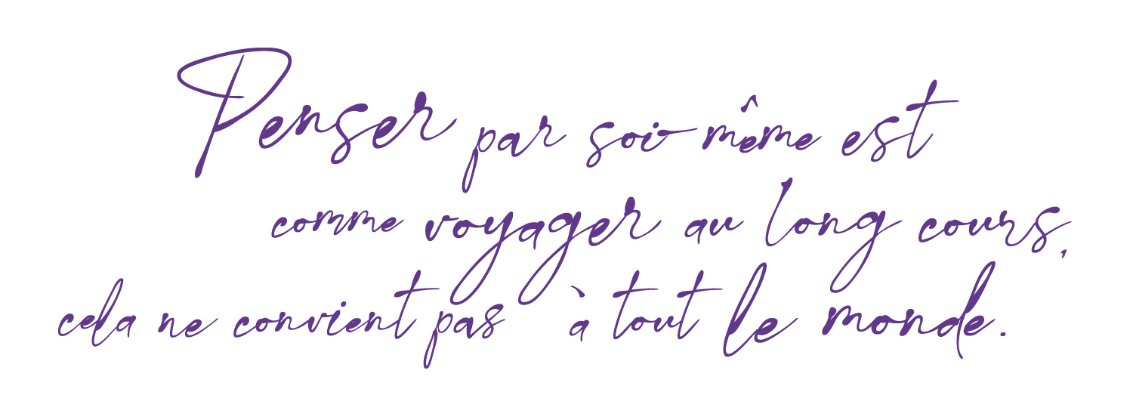 Penser par soi-même est
comme voyager au long cours,
cela ne convient pas à tout le monde.